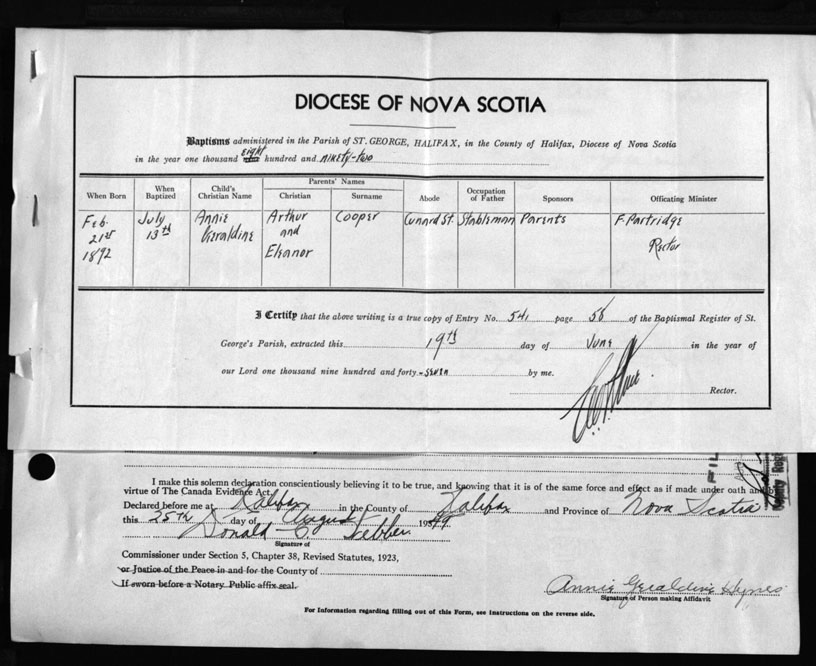 DIOCESE OF NOVA SCOTIA
Baptisms administered in the Parish of ST. GEORGE, HALIFAX, in the County of Halifax, Diocese of Nova Scotia
in the year one thousand eight hundred and ninety-two
When Born When Baptized Child's Christian Name Parents' Names Christian Surname Abode Occupation of Father Sponsors Officating Minister
Feb. July Annie Arthur Cooper Cunard St. Stableman Parents F. Partridge
21st 13th Geraldine and Rector
1892 Eleanor
I Certify that the above writing is a true copy of Entry No. 541 page 58 of the Baptismal Register of St.
George's Parish, extracted this 19th day of June in the year of
our Lord one thousand nine hundred and forty-seven by me.
Rector.
I make this solemn declaration conscientiously believing it to be true, and knowing that it is of the same force and effect as if made under oath and by
virtue of The Canada Evidence Act.
Declared before me at Halifax in the County of Halifax and Province of Nova Scotia
this 25th day of August 1949
Donald C.
Signature of
Commissioner under Section 5, Chapter 38, Revised Statutes, 1923,
or Justice of the Peace in and for the County of
If sworn before a Notary Public affix seal.
Annie Geraldine Hynes
Signature of Person making Affidavit
For Information regarding filling out of this Form, see Instructions on the reverse side.